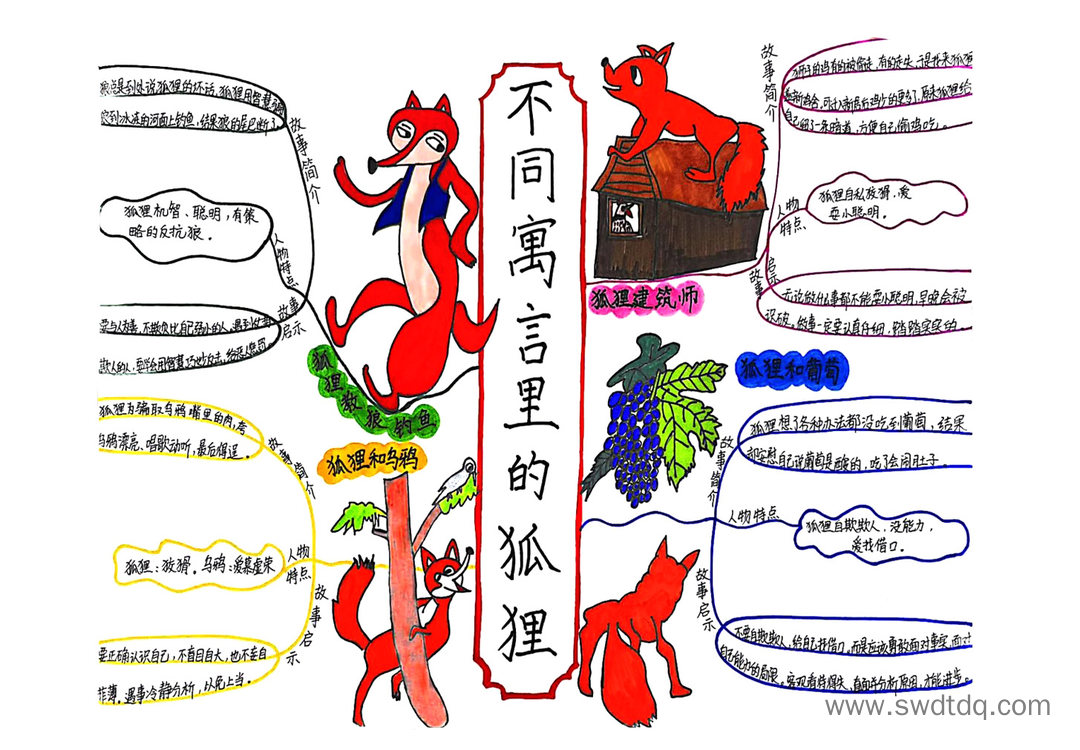 不同寓言里的狐狸
狐狸教狼钓鱼
故事简介
到处说狐狸的坏话,狐狸用智慧
到冰冻的河面上钓鱼,结果狼的尾巴断了
人物特点
狐狸机智、聪明,有策
略的反抗狼。
故事启示
与人为善,不欺负比自己弱小的人,遇到
人的人,要学会用智慧巧妙反击,
狐狸和乌鸦
故事简介
狐狸为骗取乌鸦嘴里的肉,夸
乌鸦漂亮、唱歌动听,最后得逞。
人物特点
狐狸:狡猾。乌鸦:爱慕虚荣
故事启示
要正确认识自己,不盲目自大,也不妄自
菲薄。遇事冷静分析,以免上当。
狐狸建筑师
故事简介
狮子的鸡有的被偷走,有的走失,于是找来狐狸
新鸡舍,可让新居后鸡少的更多了,原来狐狸给
自己留了一条暗道,方便自己偷鸡吃。
人物特点
狐狸自私狡猾、爱
耍小聪明。
故事启示
无论做什么事都不能耍小聪明,早晚会被
识破。做事一定要认真仔细,踏踏实实的。
狐狸和葡萄
故事简介
狐狸想了各种办法都没吃到葡萄,结果
却安慰自己说葡萄是酸的,吃了会闹肚子。
人物特点
狐狸自欺欺人,没能力,
爱找借口。
故事启示
不要自欺欺人,给自己找借口,而是应该勇敢面对事实,面对
自己能力的局限。客观看待得失,直面并分析原因,才能进步。
www.swdtdq.com